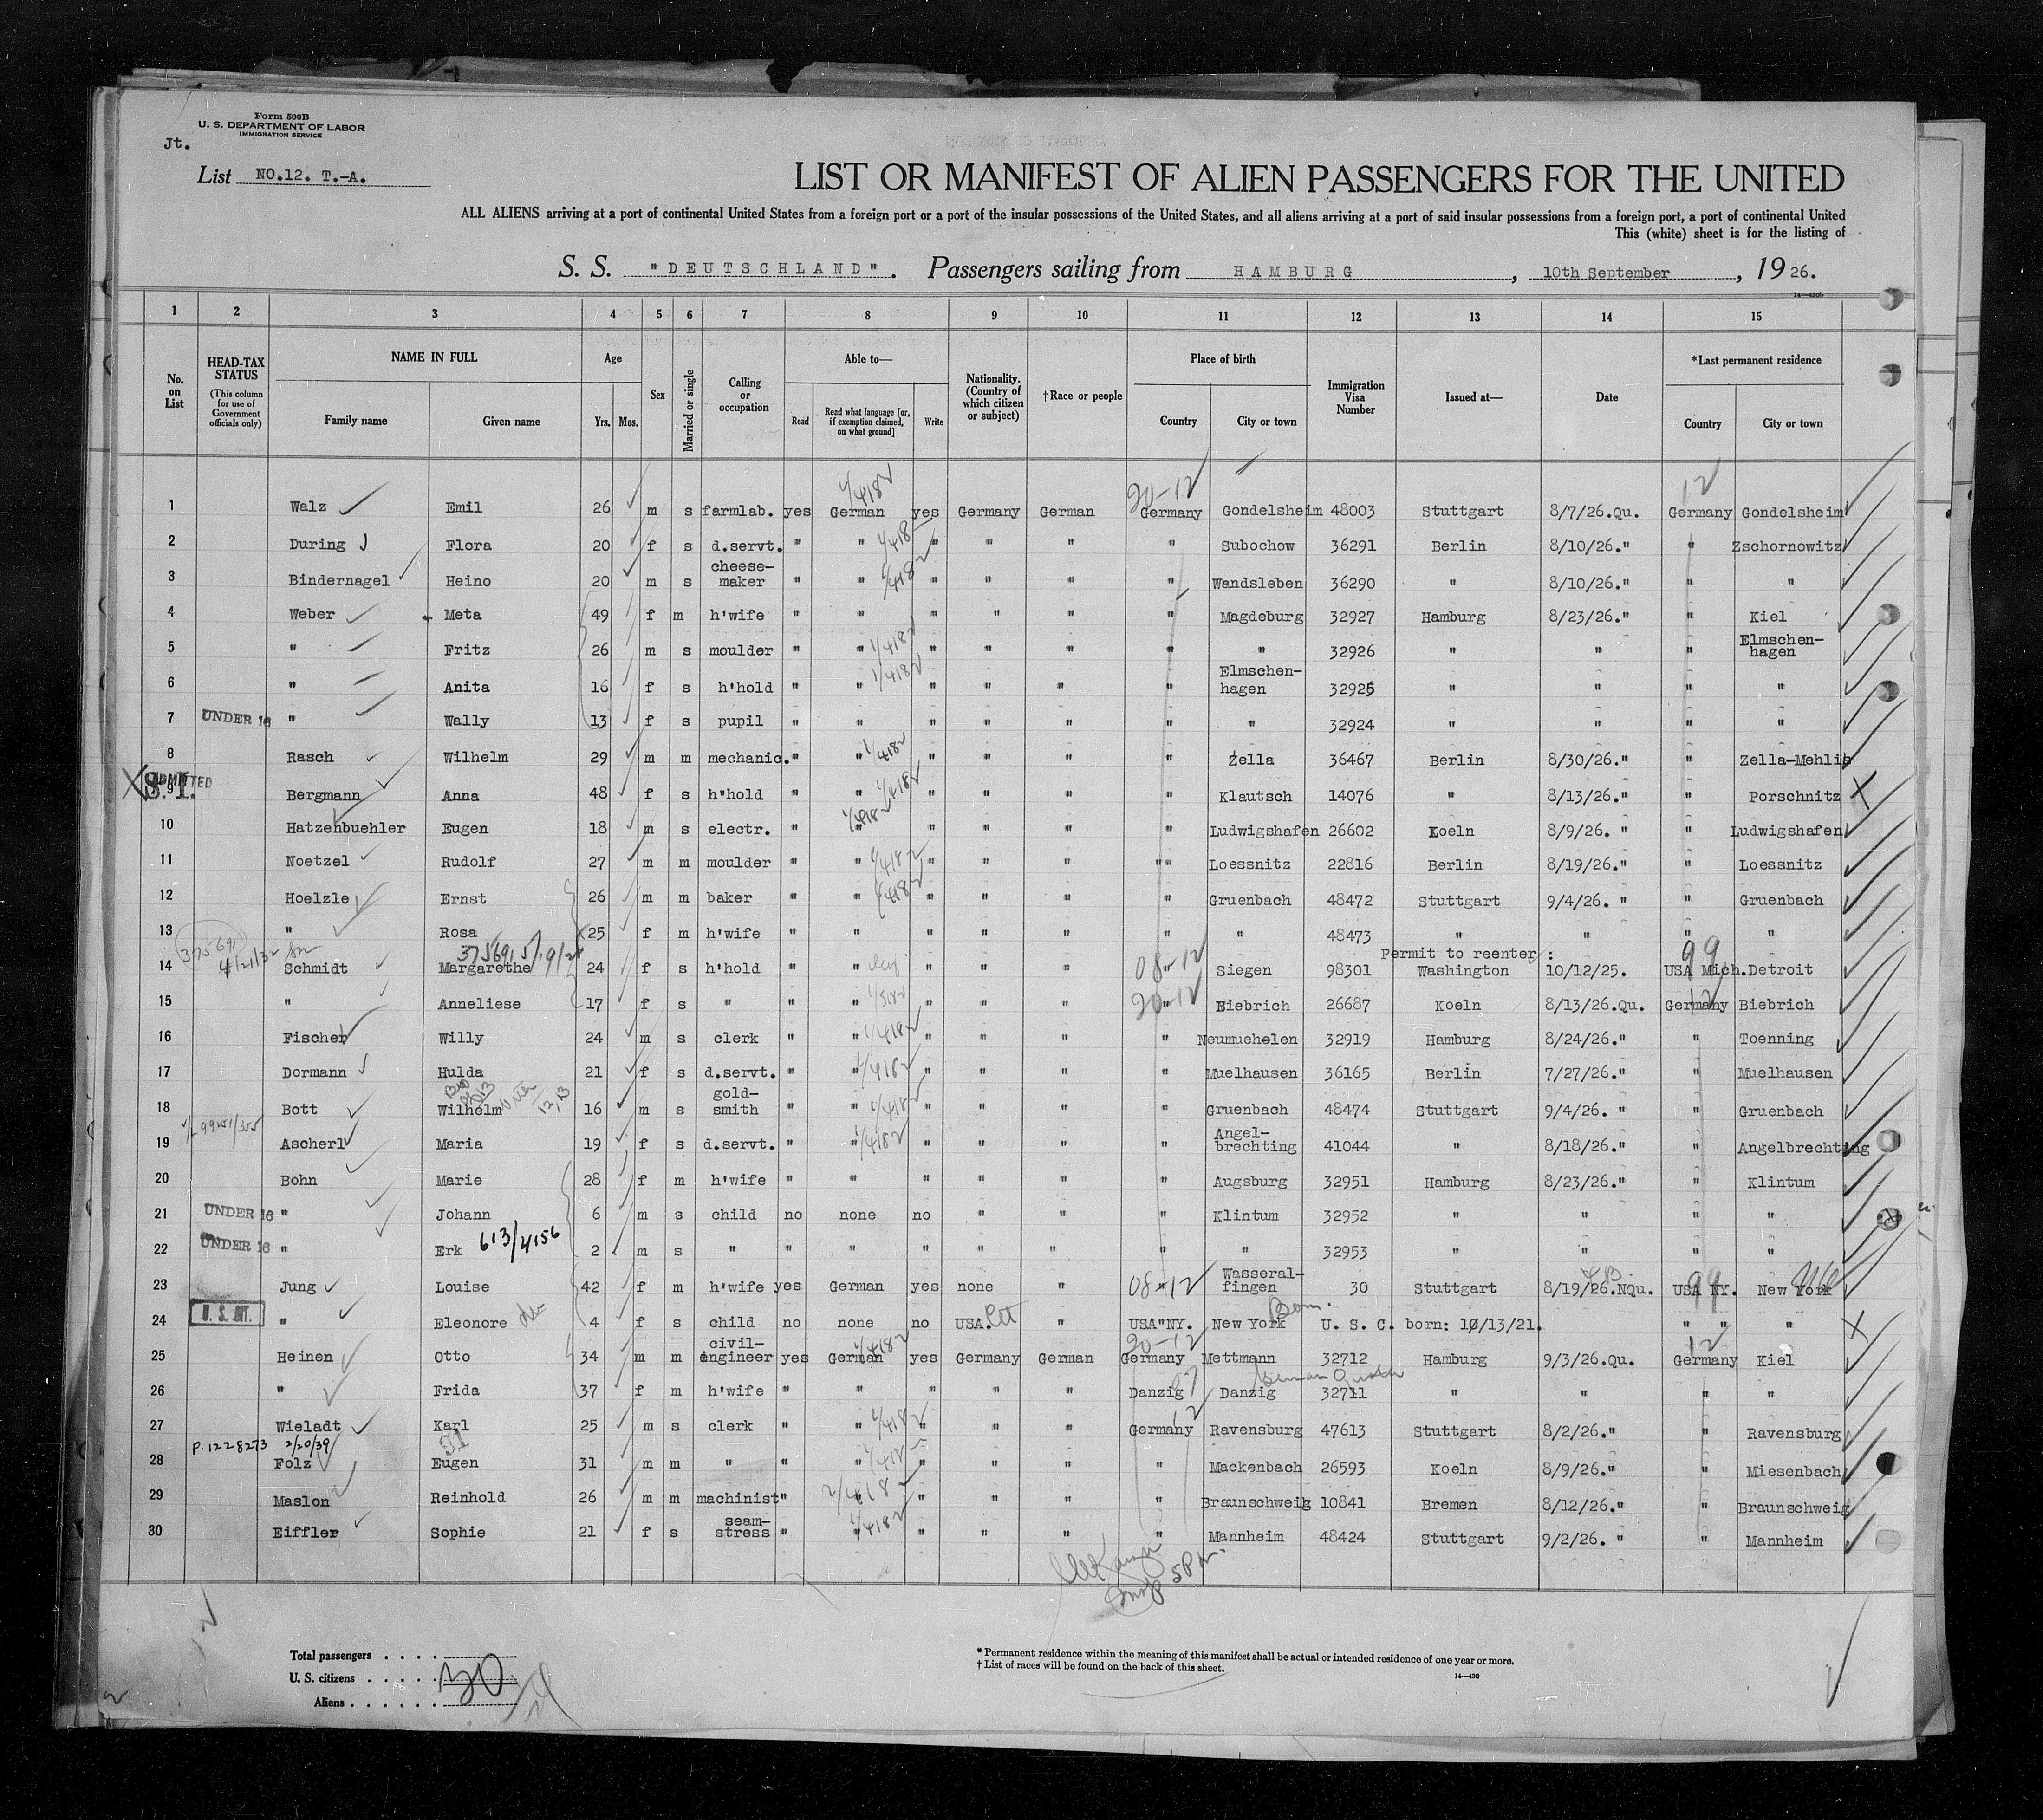 Form 500B
U. S. DEPARTMENT OF LABOR
IMMIGRATION SERVICE
Jt.
List NO.12. T.-A.
LIST OR MANIFEST OF ALIEN PASSENGERS FOR THE UNITED
ALL ALIENS arriving at a port of continental United States from a foreign port or a port of the insular possessions of the United States, and all aliens arriving at a port of said insular possessions from a foreign port, a port of continental United
This (white) sheet is for the listing of
S. S. "DEUTSCHLAND". Passengers sailing from HAMBURG, 10th September, 1926.
14—430b
1 2 3 4 5 6 7 8 9 10 11 12 13 14 15
No. on List HEAD-TAX STATUS (This column for use of Government officials only) NAME IN FULL Family name Given name Age Yrs. Mos. Sex Married or single Calling or occupation Able to— Read Read what language [or, if exemption claimed, on what ground] Write Nationality. (Country of which citizen or subject) †Race or people Place of birth Country City or town Immigration Visa Number Issued at— Date *Last permanent residence Country City or town
20-12 12
1 Walz Emil 26 m s farmlab. yes German yes Germany German Germany Gondelsheim 48003 Stuttgart 8/7/26.Qu. Germany Gondelsheim
2 During Flora 20 f s d.servt. " " " " " " Subochow 36291 Berlin 8/10/26." " Zschornowitz
3 Bindernagel Heino 20 m s cheese-maker " " " " " " Wandsleben 36290 " 8/10/26." " "
4 Weber Meta 49 f m h'wife " " " " " " Magdeburg 32927 Hamburg 8/23/26." " Kiel
5 " Fritz 26 m s moulder " " " " " " " 32926 " " " Elmschen-hagen
6 " Anita 16 f s h'hold " " " " " " Elmschen-hagen 32925 " " " "
7 UNDER 16 " Wally 13 f s pupil " " " " " " " 32924 " " " "
8 Rasch Wilhelm 29 m m mechanic. " " " " " " Zella 36467 Berlin 8/30/26." " Zella-Mehlis
ADMITTED
X S.I.
9 Bergmann Anna 48 f s h"hold " " " " " " Klautsch 14076 " 8/13/26." " Porschnitz X
10 Hatzenbuehler Eugen 18 m s electr. " " " " " " Ludwigshafen 26602 Koeln 8/9/26. " " Ludwigshafen
11 Noetzel Rudolf 27 m m moulder " " " " " "" Loessnitz 22816 Berlin 8/19/26." " Loessnitz
12 Hoelzle Ernst 26 m m baker " " " " " " Gruenbach 48472 Stuttgart 9/4/26. " " Gruenbach
13 " Rosa 25 f m h'wife " " " " " " " 48473 " " " "
375691 4/21/32
Permit to reenter :
14 Schmidt Margarethe 24 f s h'hold " " " " " 08-12 " Siegen 98301 Washington 10/12/25. 99 USA Mich. Detroit
15 " Anneliese 17 f s " " " " " " 20-12 " Biebrich 26687 Koeln 8/13/26.Qu. 12 Germany Biebrich
16 Fischer Willy 24 m s clerk " " " " " " Neumuehelen 32919 Hamburg 8/24/26." " Toenning
17 Dormann Hulda 21 f s d.servt. " " " " " " Muelhausen 36165 Berlin 7/27/26." " Muelhausen
18 Bott Wilhelm 16 m s gold-smith " " " " " " Gruenbach 48474 Stuttgart 9/4/26. " " Gruenbach
19 Ascherl Maria 19 f s d.servt. " " " " " " Angel-brechting 41044 " 8/18/26." " Angelbrechting
20 Bohn Marie 28 f m h'wife " " " " " " Augsburg 32951 Hamburg 8/23/26." " Klintum
21 UNDER 16 " Johann 6 m s child no none no " " " Klintum 32952 " " " "
22 UNDER 16 " Erk 613/4156 2 m s " " " " " " " " 32953 " " " "
23 Jung Louise 42 f m h'wife yes German yes none " 08-12 " Wasseral-fingen 30 Stuttgart 8/19/26.NQu. 99 USA NY. New York
24 " Eleonore 4 f s child no none no USA. " USA"NY. New York U. S. C. born: 10/13/21. " " " X
20-12 12
25 Heinen Otto 34 m m civil-engineer yes German yes Germany German Germany Mettmann 32712 Hamburg 9/3/26.Qu. Germany Kiel
26 " Frida 37 f m h'wife " " " " " Danzig Danzig 32711 " " " "
27 Wieladt Karl 25 m s clerk " " " " " Germany Ravensburg 47613 Stuttgart 8/2/26." " Ravensburg
P.1228273 2/20/39
28 Folz Eugen 31 m m " " " " " " " Mackenbach 26593 Koeln 8/9/26." " Miesenbach
29 Maslon Reinhold 26 m m machinist " " " " " " Braunschweig 10841 Bremen 8/12/26." " Braunschweig
30 Eiffler Sophie 21 f s seam-stress " " " " " " Mannheim 48424 Stuttgart 9/2/26. " " Mannheim
Total passengers . . . .
U. S. citizens . . . . . 30
Aliens . . . . . .
* Permanent residence within the meaning of this manifest shall be actual or intended residence of one year or more.
† List of races will be found on the back of this sheet.
14—430